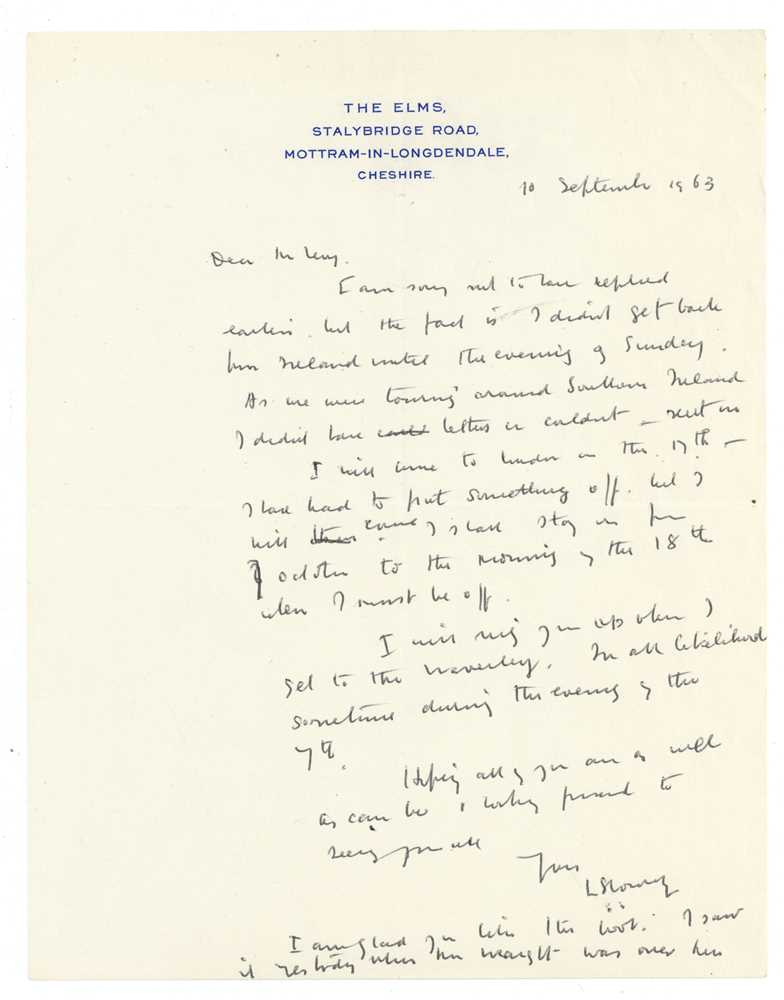 THE ELMS,
STALYBRIDGE ROAD,
MOTTRAM-IN-LONGDENDALE,
CHESHIRE.
10 September 1963
Dear Mr Levy.
I am sorry not to have replied
earlier. but the fact is I didn't get back
from Ireland until the evening of Sunday.
As we were touring around Southern Ireland
I didn't have letters or couldn't
I will come to London on the 17th –
I have had to put something off. but I
will come. I shall stay on from
October to the morning of the 18th
when I must be off.
I will ring you up when I
get to the Waverley. In all likelihood
sometime during the evening of the
7th.
Hoping all of you are as well
as can be & looking forward to
seeing you all
Yours
LSLowry
I am glad you like the book. I saw
it yesterday when was over here